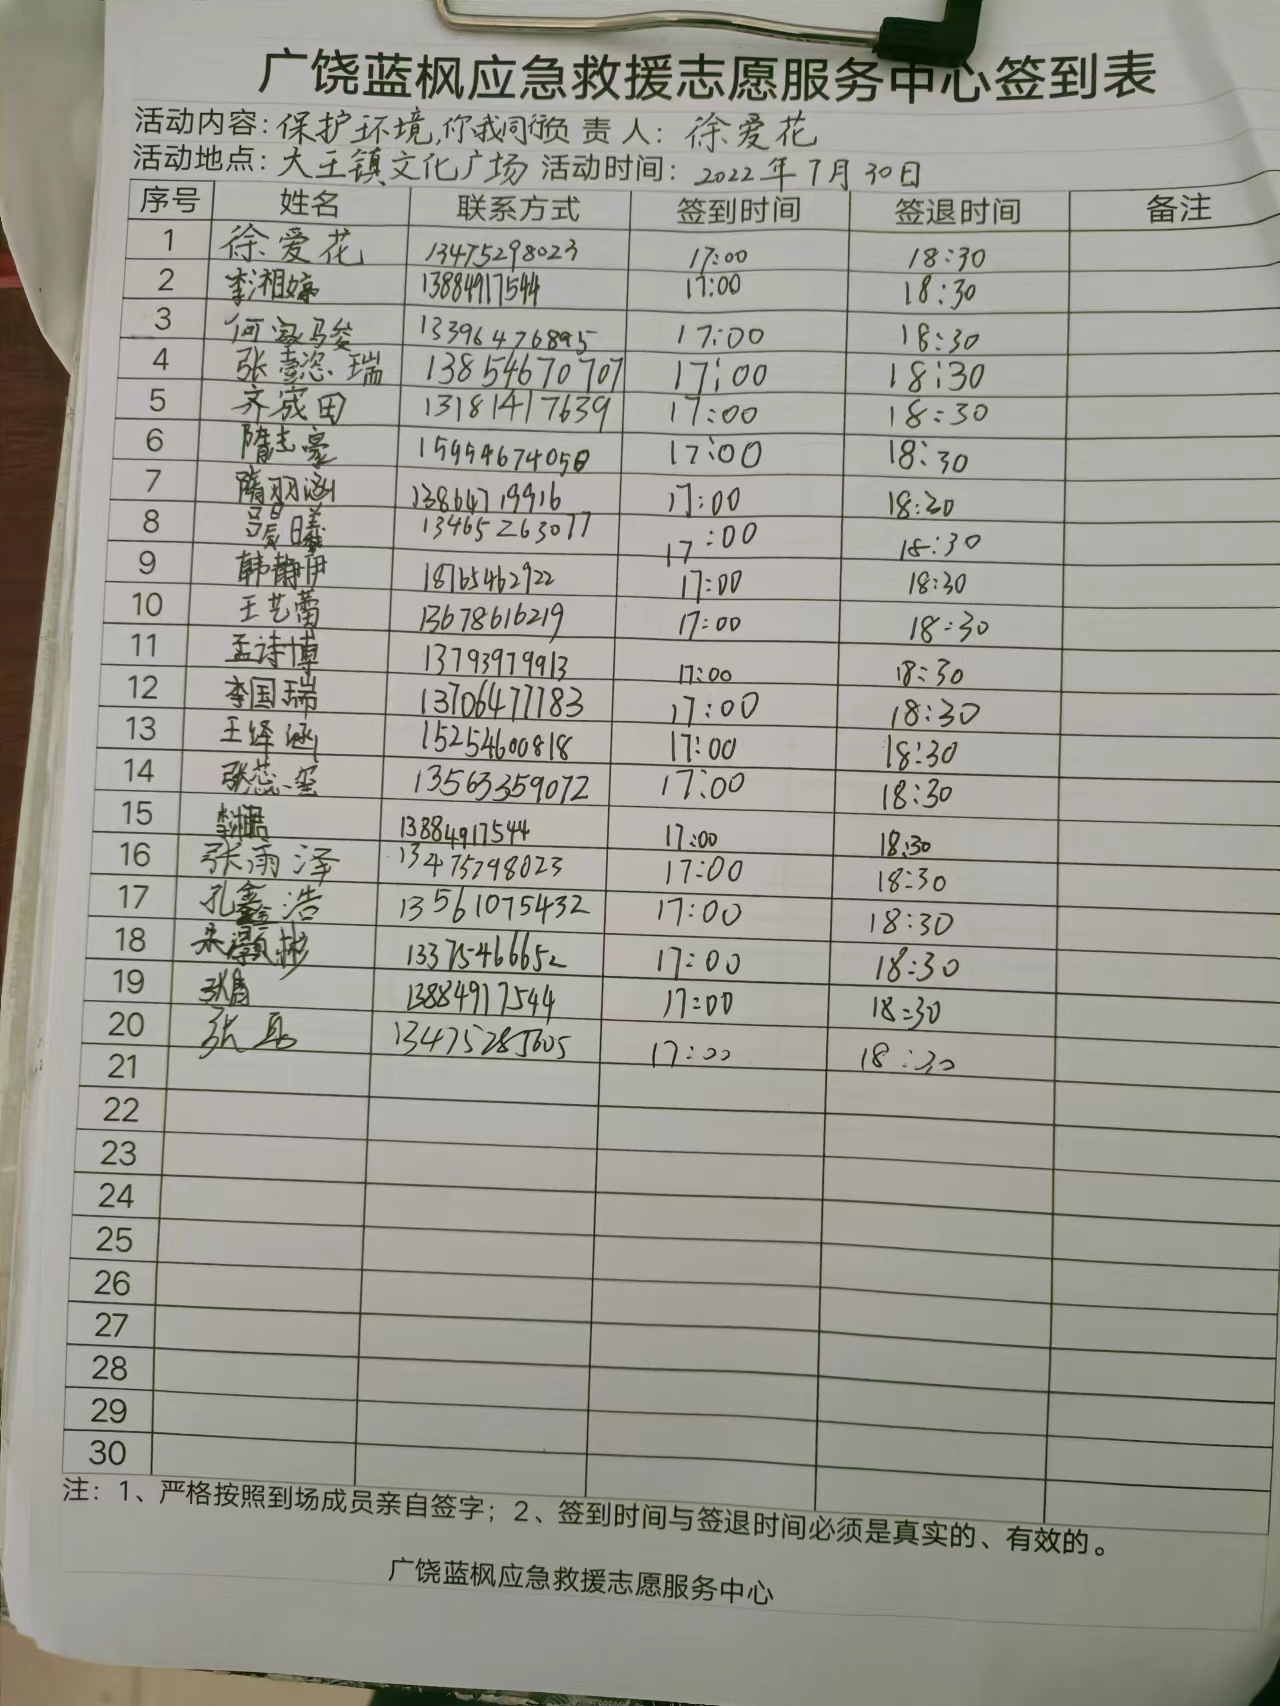 广饶蓝枫应急救援志愿服务中心签到表
活动内容：保护环境,你我同行 负责人：徐爱花
活动地点：大王镇文化广场 活动时间：2022年7月30日
序号 姓名 联系方式 签到时间 签退时间 备注
1 徐爱花 13475298023 17:00 18:30
2 李湘婷 13884917544 17:00 18:30
3 13396476895 17:00 18:30
4 张壹恣瑞 13854670707 17:00 18:30
5 齐宬田 13181417639 17:00 18:30
6 隋志豪 15954674050 17:00 18:30
7 隋羽涵 13864719916 17:00 18:30
8 13465263077 17:00 18:30
9 韩静伊 18765462922 17:00 18:30
10 王艺蕾 13678616219 17:00 18:30
11 孟诗博 13793979913 17:00 18:30
12 李国瑞 13706477783 17:00 18:30
13 王绎涵 15254600818 17:00 18:30
14 张蕊玺 13563359072 17:00 18:30
15 13884917544 17:00 18:30
16 张雨泽 13475298023 17:00 18:30
17 孔鑫浩 13561075432 17:00 18:30
18 13375466652 17:00 18:30
19 13884917544 17:00 18:30
20 张磊 13475285605 17:00 18:30
21
22
23
24
25
26
27
28
29
30
注：1、严格按照到场成员亲自签字；2、签到时间与签退时间必须是真实的、有效的。
广饶蓝枫应急救援志愿服务中心